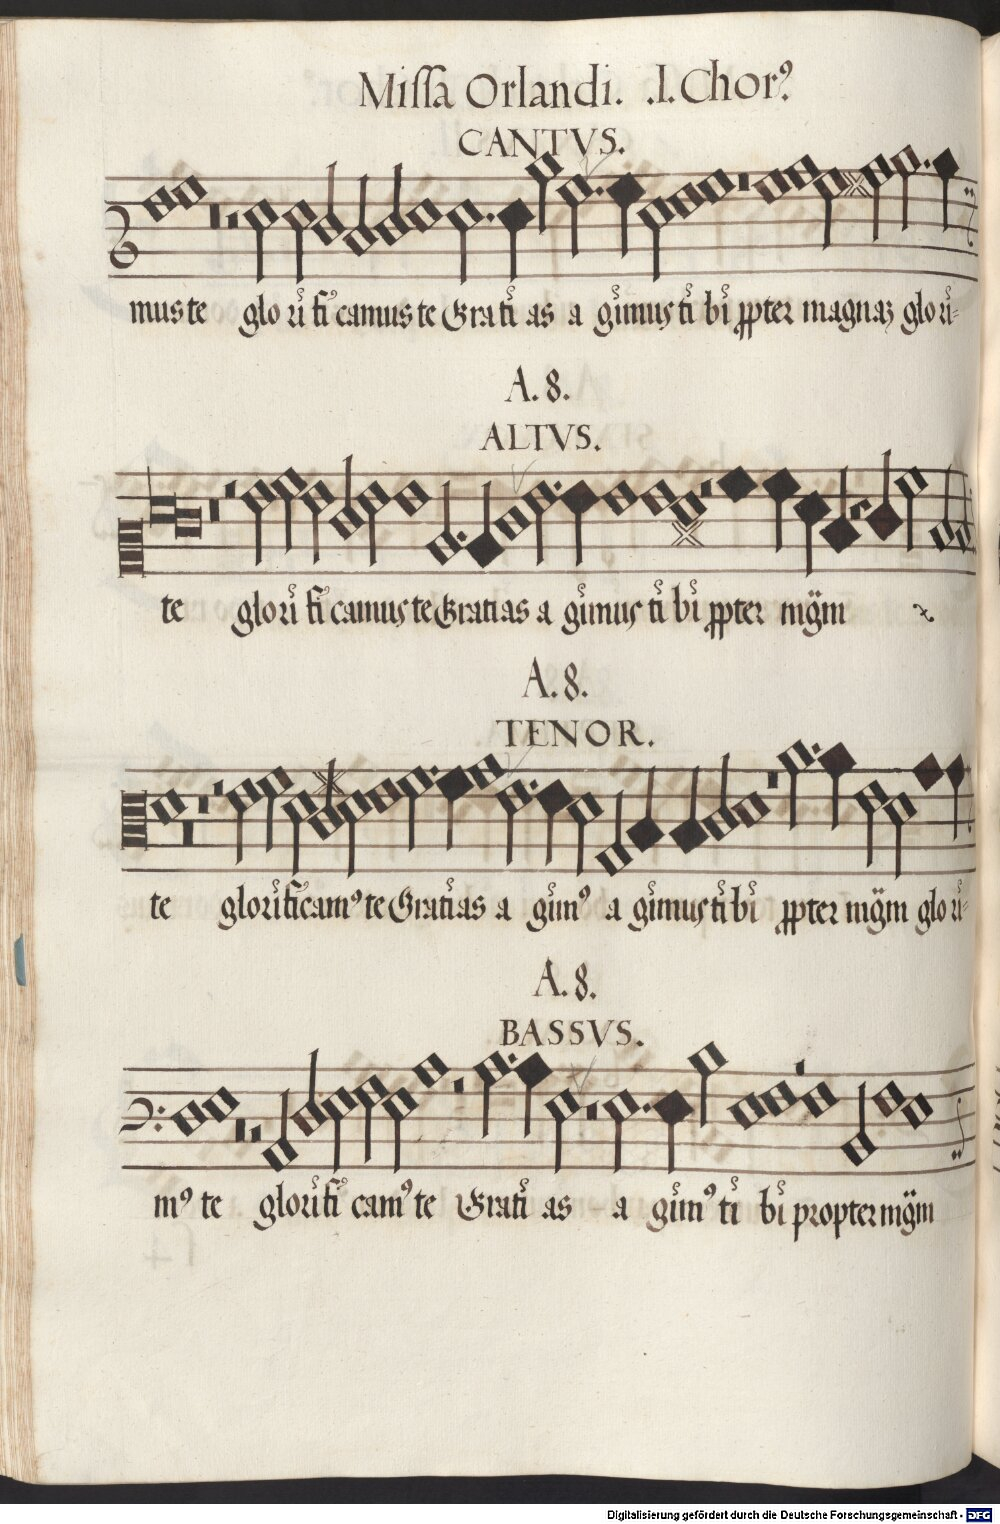 Missa Orlandi. .I. Chorꝰ
CANTVS.
mus te glo ri fi camus te Gra ti as a gimus ti bi ꝓpter magnaʒ glo ri-
A. 8.
ALTVS.
te glo ri fi camus te Gratias a gimus ti bi ꝓpter mg̈m
A. 8.
TENOR.
te glorificamꝰ te Gratias a gimꝰ a gimus ti bi ꝓpter mg̈m glo ri-
A. 8.
BASSVS.
mꝰ te glorifi camꝰ te Grati as a gimꝰ ti bi propter mg̈m
Digitalisierung gefördert durch die Deutsche Forschungsgemeinschaft - DFG